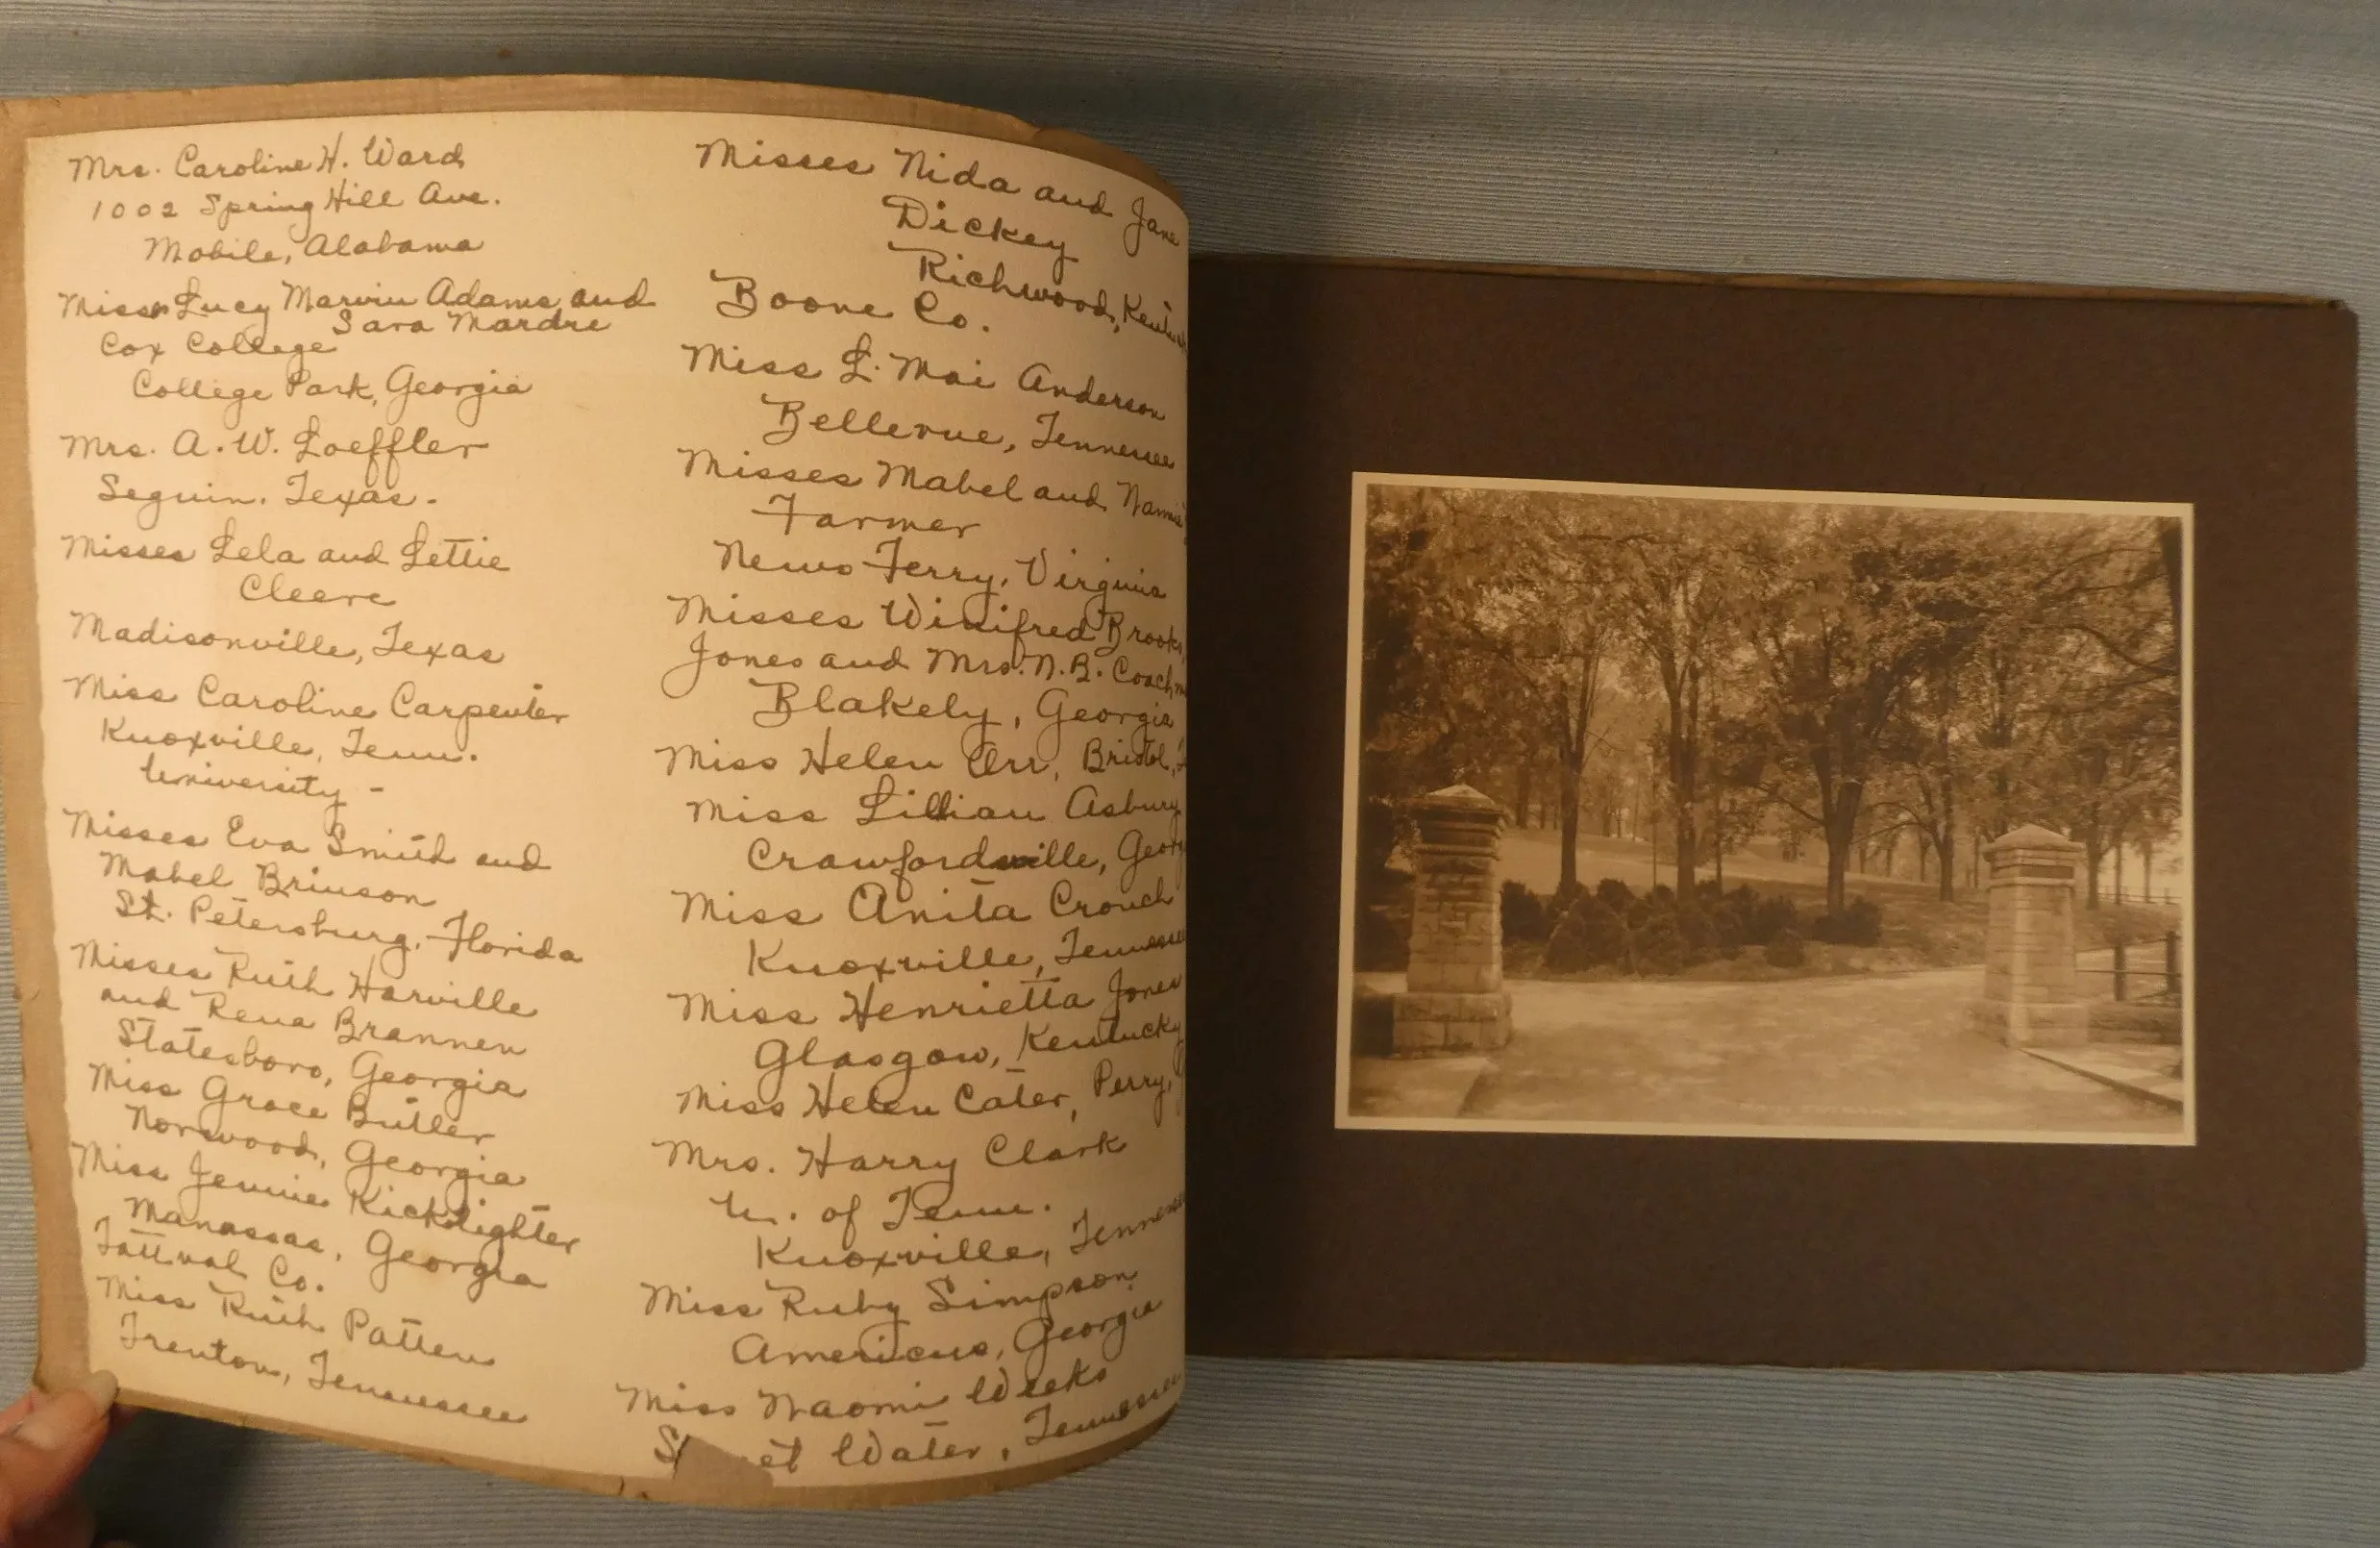 Mrs. Caroline H. Ward
1002 Spring Hill Ave.
Mobile, Alabama
Misses Lucy Marvin Adams and
Sara Mardre
Cox College
College Park, Georgia
Mrs. A. W. Loeffler
Seguin, Texas.
Misses Lela and Lettie
Cleere
Madisonville, Texas
Miss Caroline Carpenter
Knoxville, Tenn.
University -
Misses Eva Smith and
Mabel Brinson
St. Petersburg, Florida
Misses Ruth Harville
and Rena Brannen
Statesboro, Georgia
Miss Grace Butler
Norwood, Georgia
Miss Jennie Kicklighter
Manassas, Georgia
Tattnal Co.
Miss Ruth Patten
Trenton, Tennessee
Misses Nida and Jane
Dickey
Richwood,
Boone Co.
Miss L. Mai Anderson
Bellevue, Tennessee
Misses Mabel and
Farmer
News Ferry, Virginia
Misses Winifred
Jones and Mrs. N. B.
Blakely, Georgia
Miss Helen Orr, Bristol,
Miss Lillian Asbury
Crawfordville,
Miss Anita Crouch
Knoxville, Tennessee
Miss Henrietta Jones
Glasgow, Kentucky
Miss Helen Cater, Perry,
Mrs. Harry Clark
U. of Tenn.
Knoxville, Tennessee
Miss Ruby Simpson
Americus, Georgia
Miss Naomi Weeks
Water, Tennessee